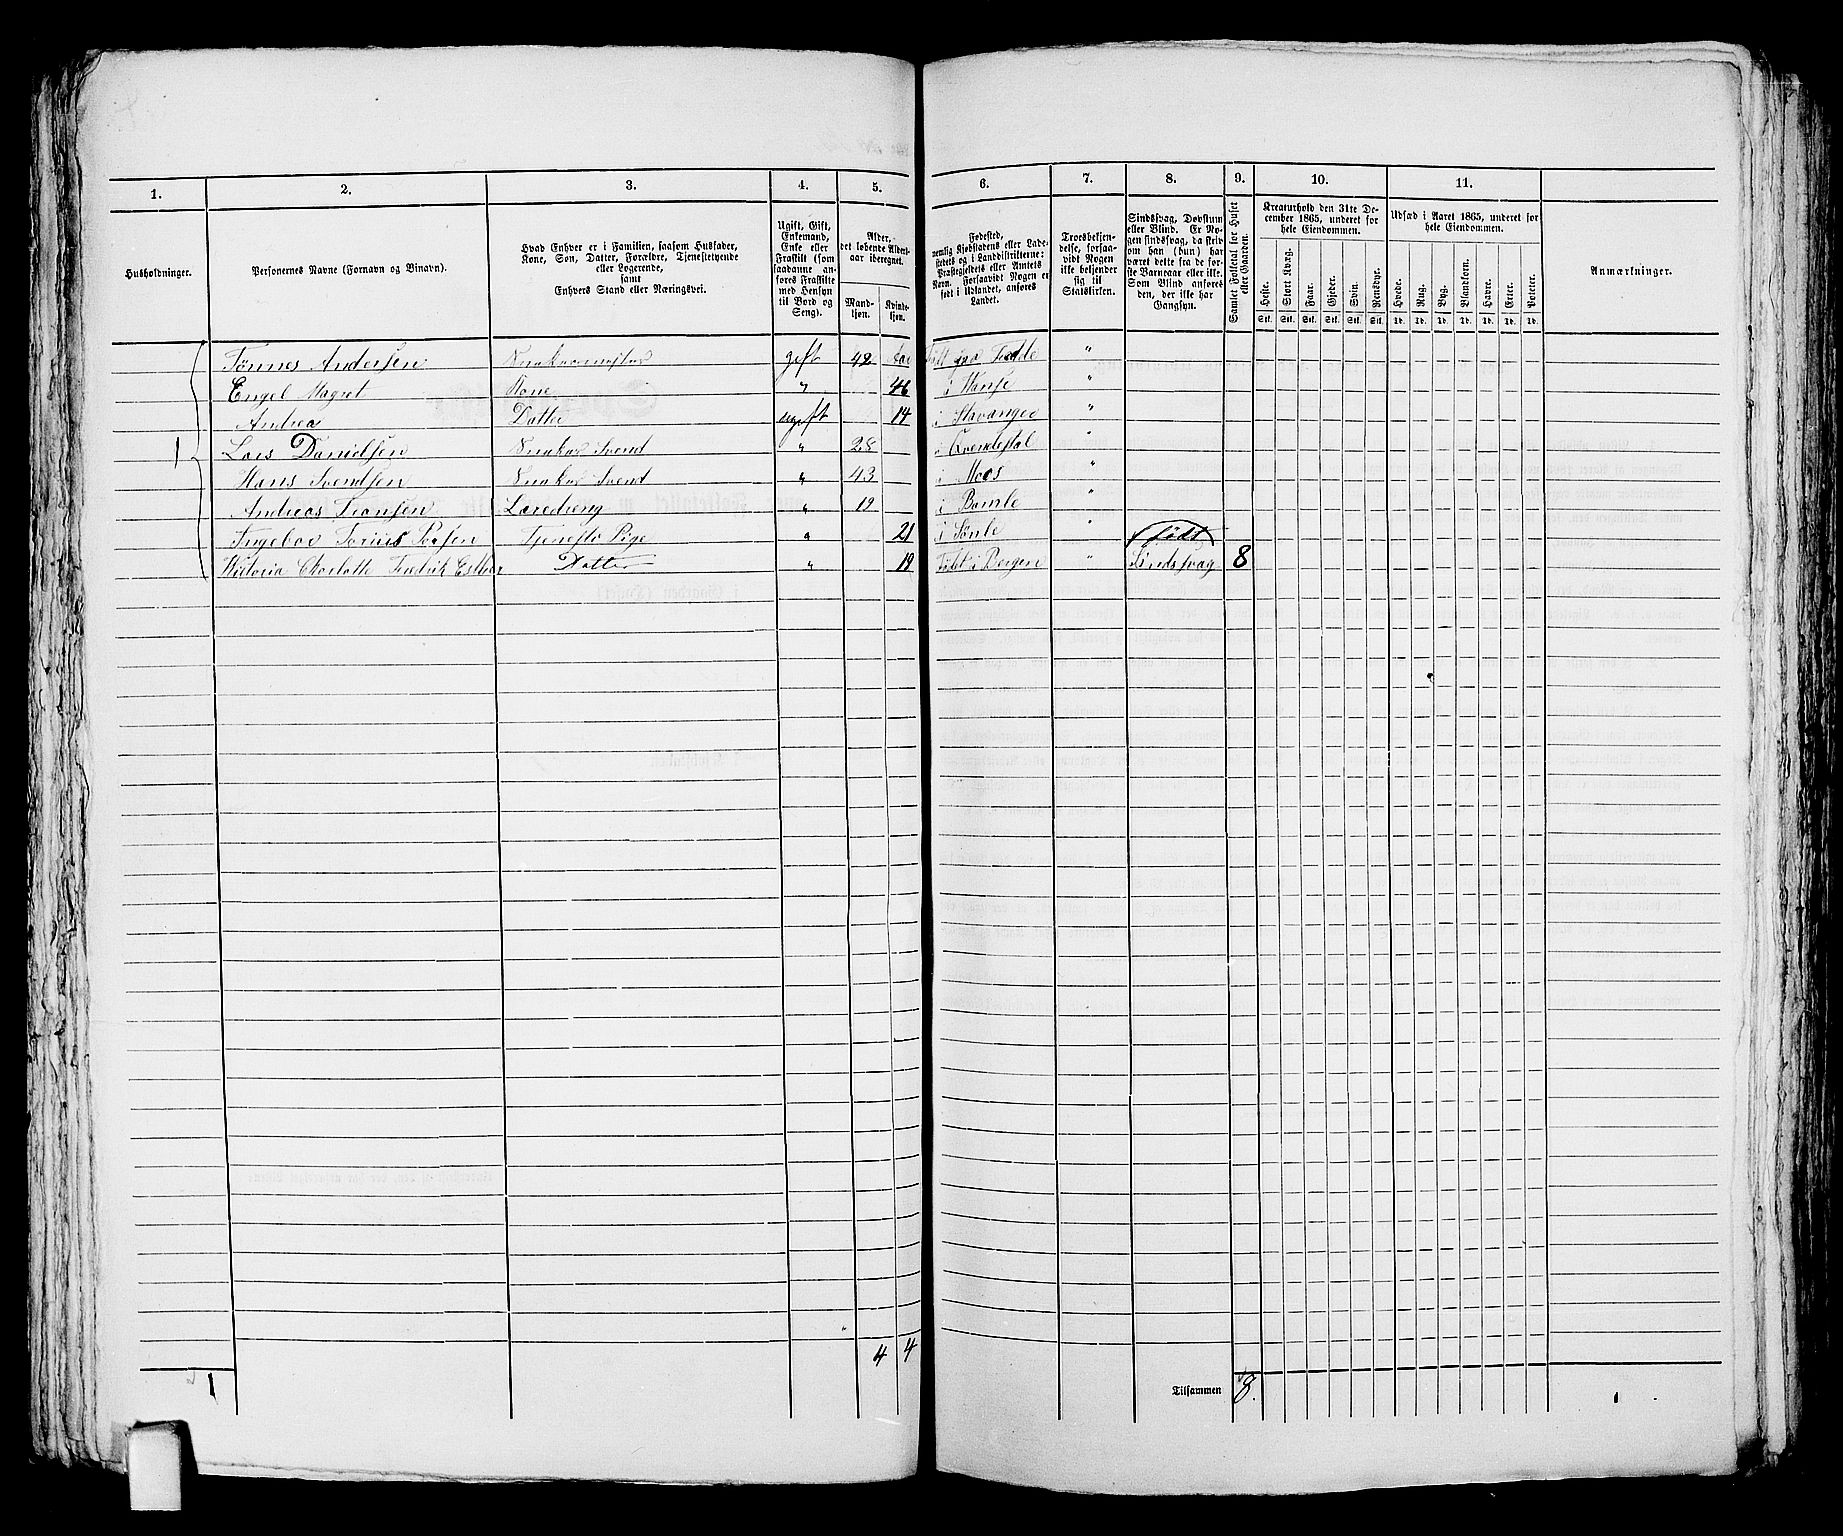 1. 2. 3. 4. 5. 6. 7. 8. 9. 10. 11.
Husholdninger.
Personernes Navne (Fornavn og Binavn).
Hvad Enhver er i Familien, saasom Husfader,
Kone, Søn, Datter, Forældre, Tjenestetyende
eller Logerende,
samt
Enhvers Stand eller Næringsvei.
Ugift, Gift,
Enkemand,
Enke eller
Fraskilt (som
saadanne an-
føres Fraskilte
med Hensyn
til Bord og
Seng).
Alder,
det løbende Alders-
aar iberegnet.
Mand-
kjøn.
Kvinde-
kjøn.
Fødested,
nemlig Kjøbstadens eller Lade-
stedets og i Landdistrikterne:
Præstegjeldets eller Amtets
Navn. Forsaavidt Nogen er
født i Udlandet, anføres
Landet.
Troesbekjen-
delse, forsaa-
vidt Nogen
ikke bekjender
sig til
Statskirken.
Sindssvag, Døvstum
eller Blind. Er No-
gen sindssvag, da skriv
om han (hun) har
været dette fra de før-
ste Barneaar eller ikke.
Som Blind anføres
den, der ikke har
Gangsyn.
Samlet Folketal for Huset
eller Gaarden.
Kreaturhold den 31te De-
cember 1865, underet for
hele Eiendommen.
Heste. Stort Kvæg. Faar. Gjeder. Svin. Rensdyr.
Stk. Stk. Stk. Stk. Stk. Stk.
Udsæd i Aaret 1865, underet for
hele Eiendommen.
Hvede. Rug. Byg. Blandkorn. Havre. Erter. Poteter.
Td. Td. Td. Td. Td. Td. Td.
Anmærkninger.
Tønnes Andersen gift 42
Engel Magret Kone " 46 "
Andrea Datter ugift 14 i Stavanger "
1 Lars Danielsen Snekker Svend " 28 i Qvindesdal "
Hans Svendsen Snekker Svend " 43 i Moss "
Andreas Læredreng " 19 i Bamle "
Tjeneste Pige " 21 " født
Charlotte Fredrik Datter " 19 Født i Bergen " Sindssvag 8
4 4
1 Tilsammen 8.